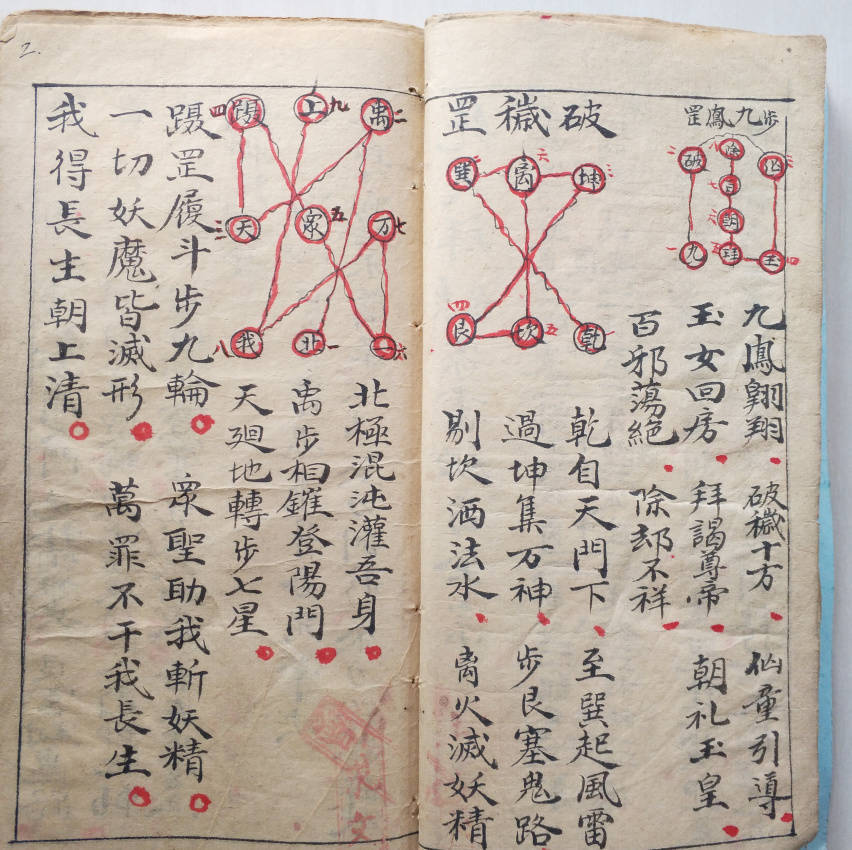 步九鳳罡
八 除
二 破
三 仙
七 百
六 朝
一 九
五
四 玉
九鳳翺翔 破穢十方 仙童引導
玉女回房 拜謁尊帝 朝礼玉皇
百邪蕩絶 除却不祥
破穢罡
坤 三
离 六
巽 二
乾 一
坎 五
艮 四
乾自天門下 至巽起風雷
過坤集万神 步艮塞鬼路
剔坎洒法水 离火滅妖精
2.
禹 二
上 九
躡 四
万 七
眾 五
天 三
一 六
北 一
我 八
北極混沌灌吾身
禹步相鏙登陽門
天廻地轉步七星
躡罡履斗步九輪 眾聖助我斬妖精
一切妖魔皆滅形 萬罪不干我長生
我得長生朝上清